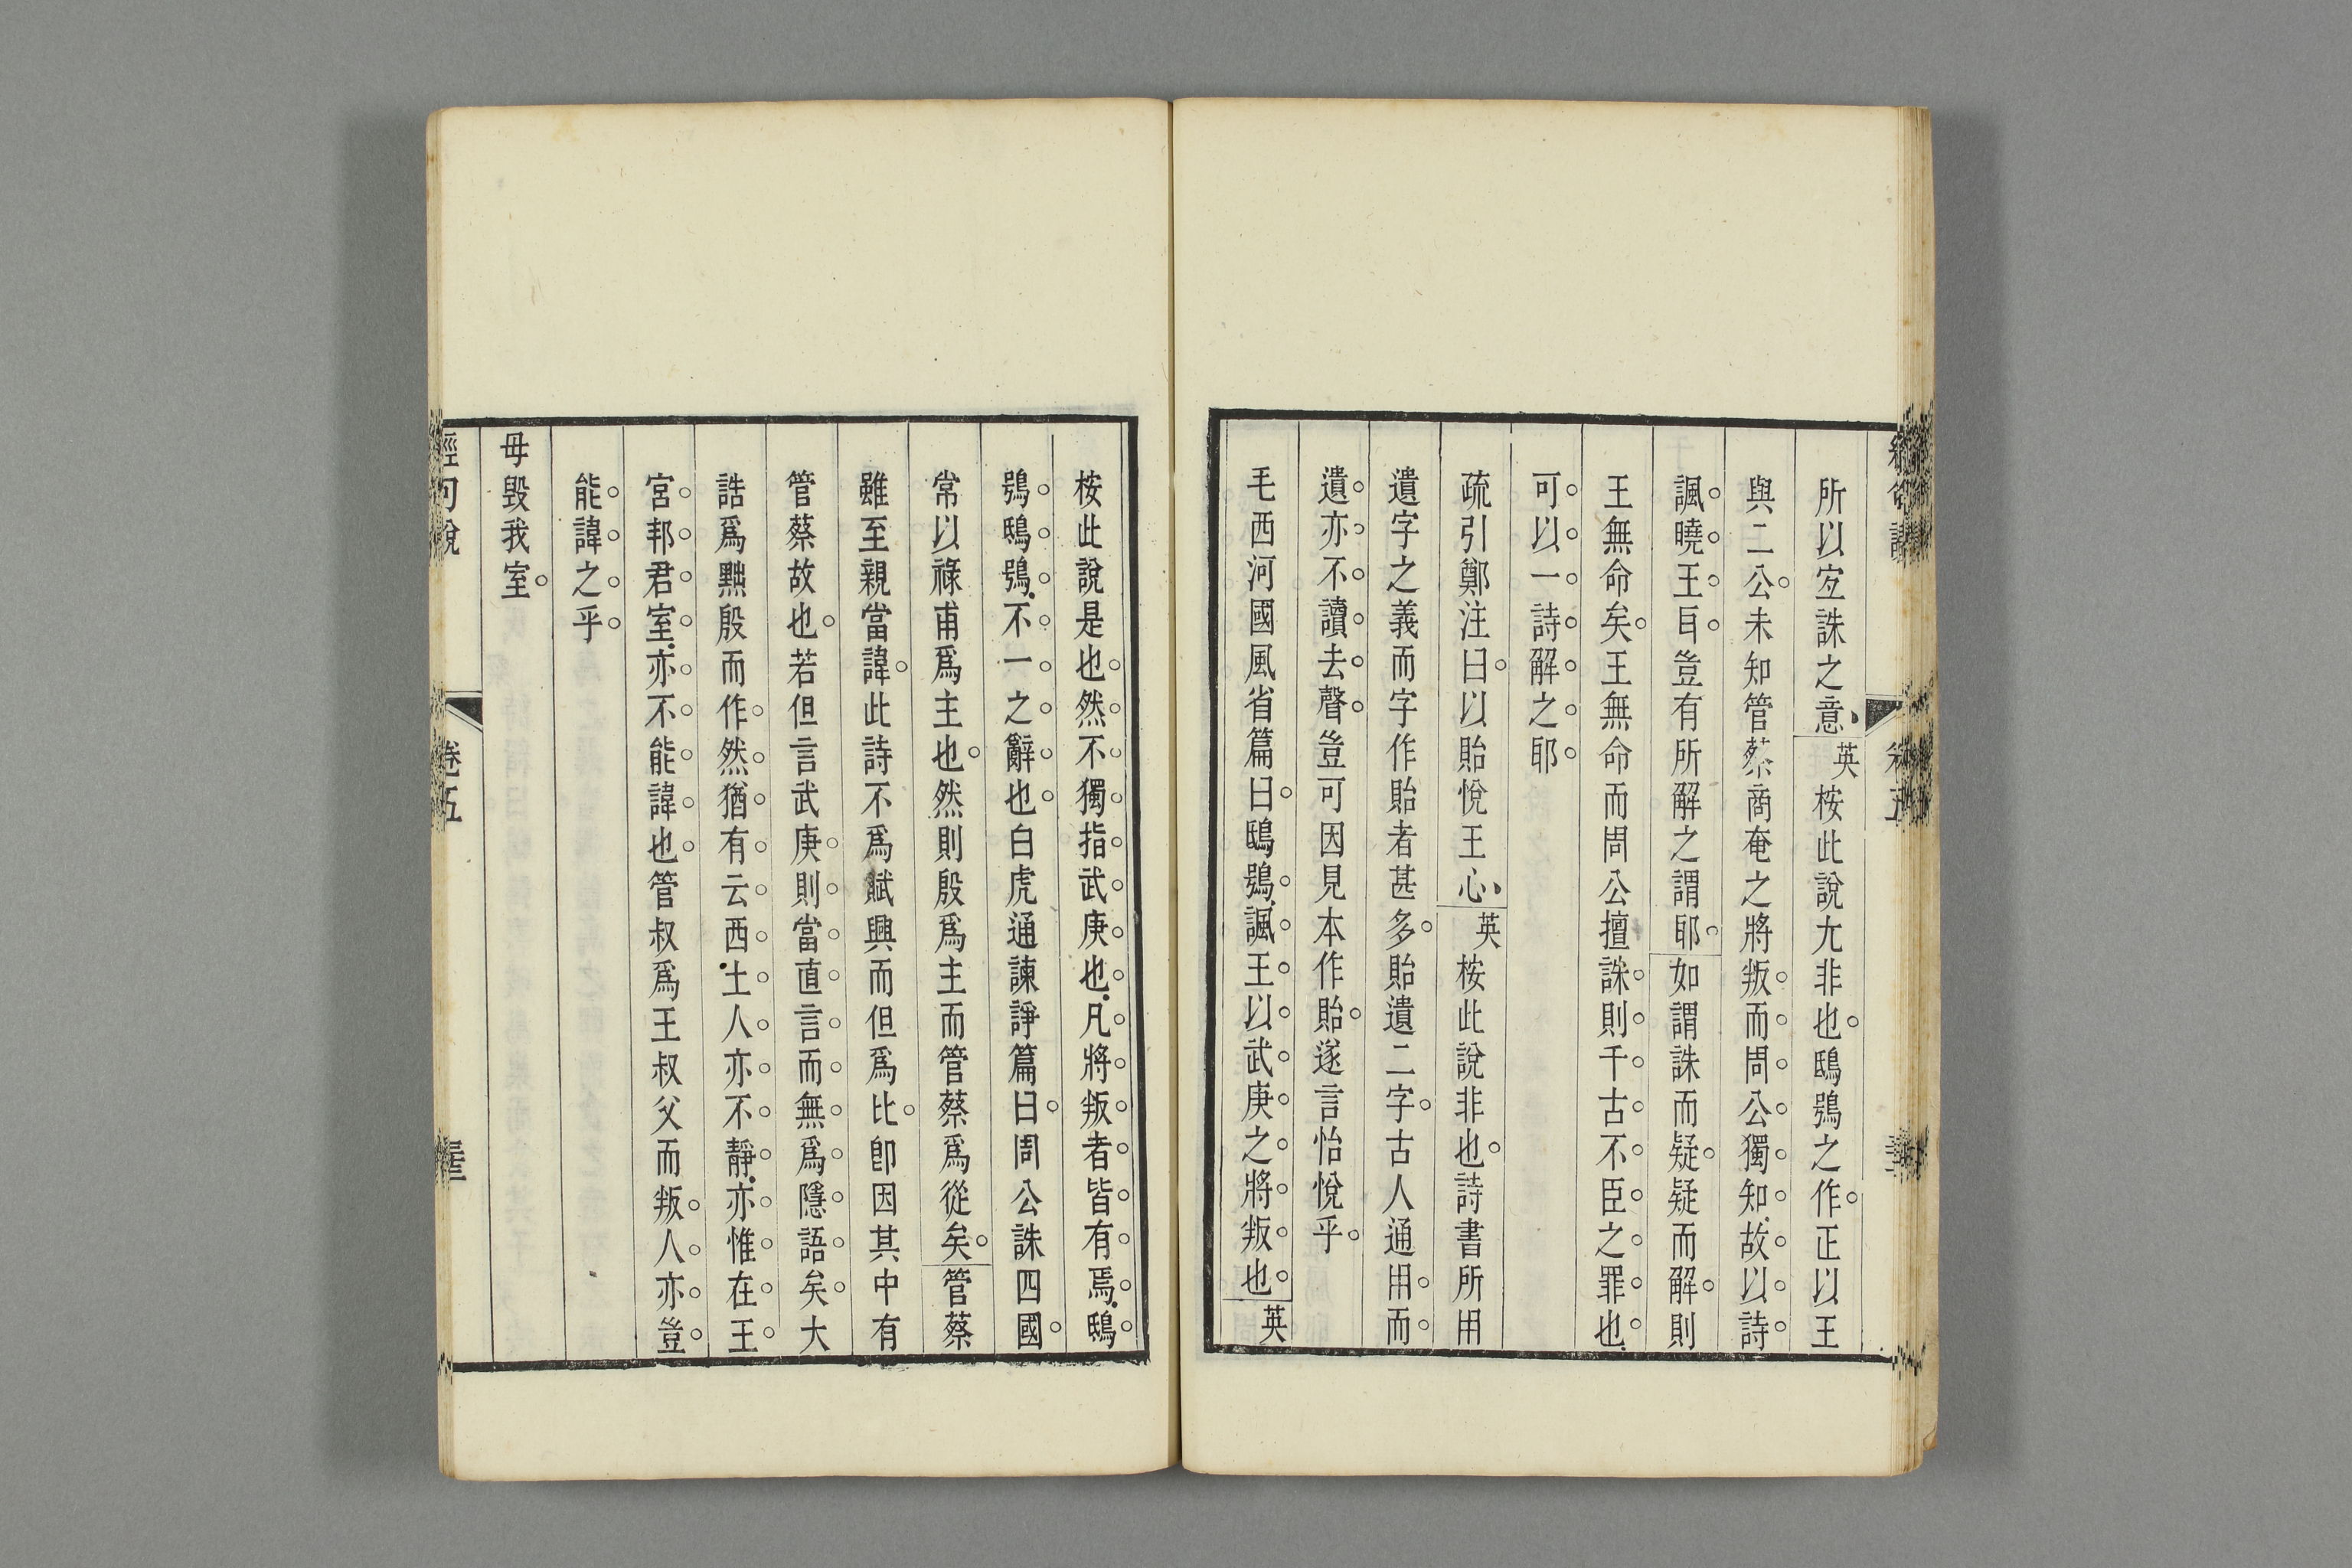 所以宐誅之意英桉此說尢非也鴟鴞之作正以王
與二公未知管蔡商奄之將叛而周公獨知故以詩
諷曉王㠯豈有所解之謂耶如謂誅而疑疑而解則
王無命矣王無命而周公擅誅則千古不臣之罪也
可以一詩解之耶
疏引鄭注曰以貽悅王心英桉此說非也詩書所用
遺字之義而字作貽者甚多貽遺二字古人通用而
遺亦不讀去聲豈可因見本作貽遂言怡悅乎
毛西河國風省篇曰鴟鴞諷王以武庚之將叛也英
桉此說是也然不獨指武庚也凡將叛者皆有焉鴟
鴞鴟鴞不一之辭也白虎通諫諍篇曰周公誅四國
常以祿甫爲主也然則殷爲主而管蔡爲從矣管蔡
雖至親當諱此詩不爲賦興而但爲比卽因其中有
管蔡故也若但言武庚則當直言而無爲隱語矣大
誥爲黜殷而作然猶有云西土人亦不靜亦惟在王
宮邦君室亦不能諱也管叔爲王叔父而叛人亦豈
能諱之乎
毋毀我室
經句說
卷五